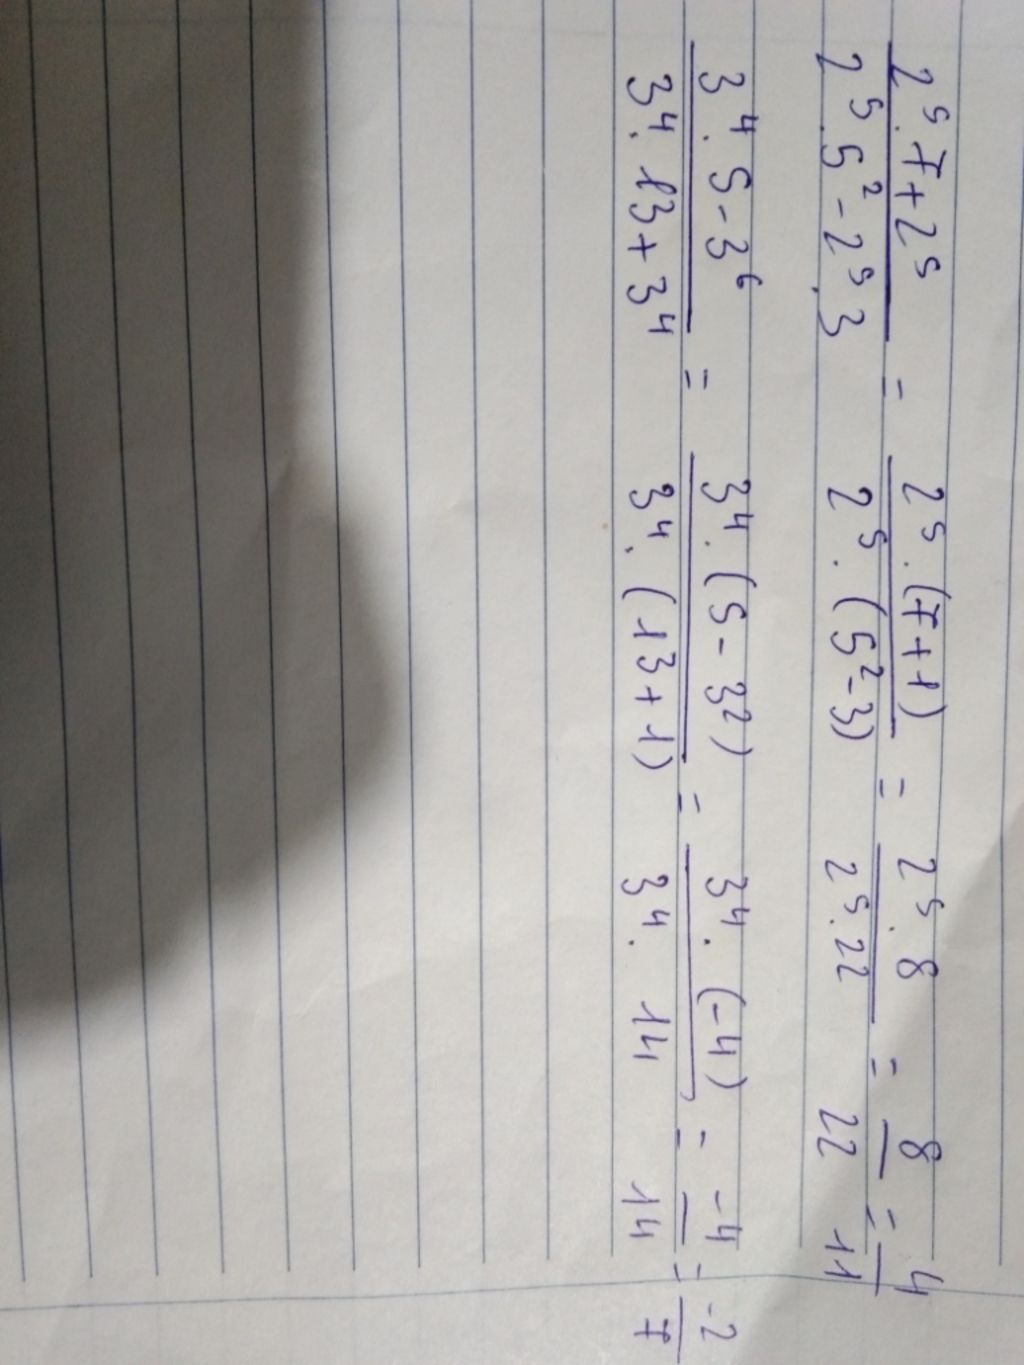 (2⁵.7+2⁵)/(2⁵.5²-2⁵.3) = (2⁵.(7+1))/(2⁵.(5²-3)) = (2⁵.8)/(2⁵.22) = 8/22 = 4/11
(3⁴.5-3⁶)/(3⁴.13+3⁴) = (3⁴.(5-3²))/(3⁴.(13+1)) = (3⁴.(-4))/(3⁴.14) = -4/14 = -2/7